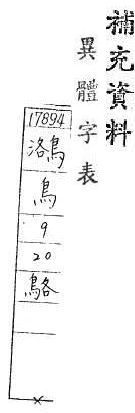 補充資料
異體字表
17894
鳥
9
20
鴼